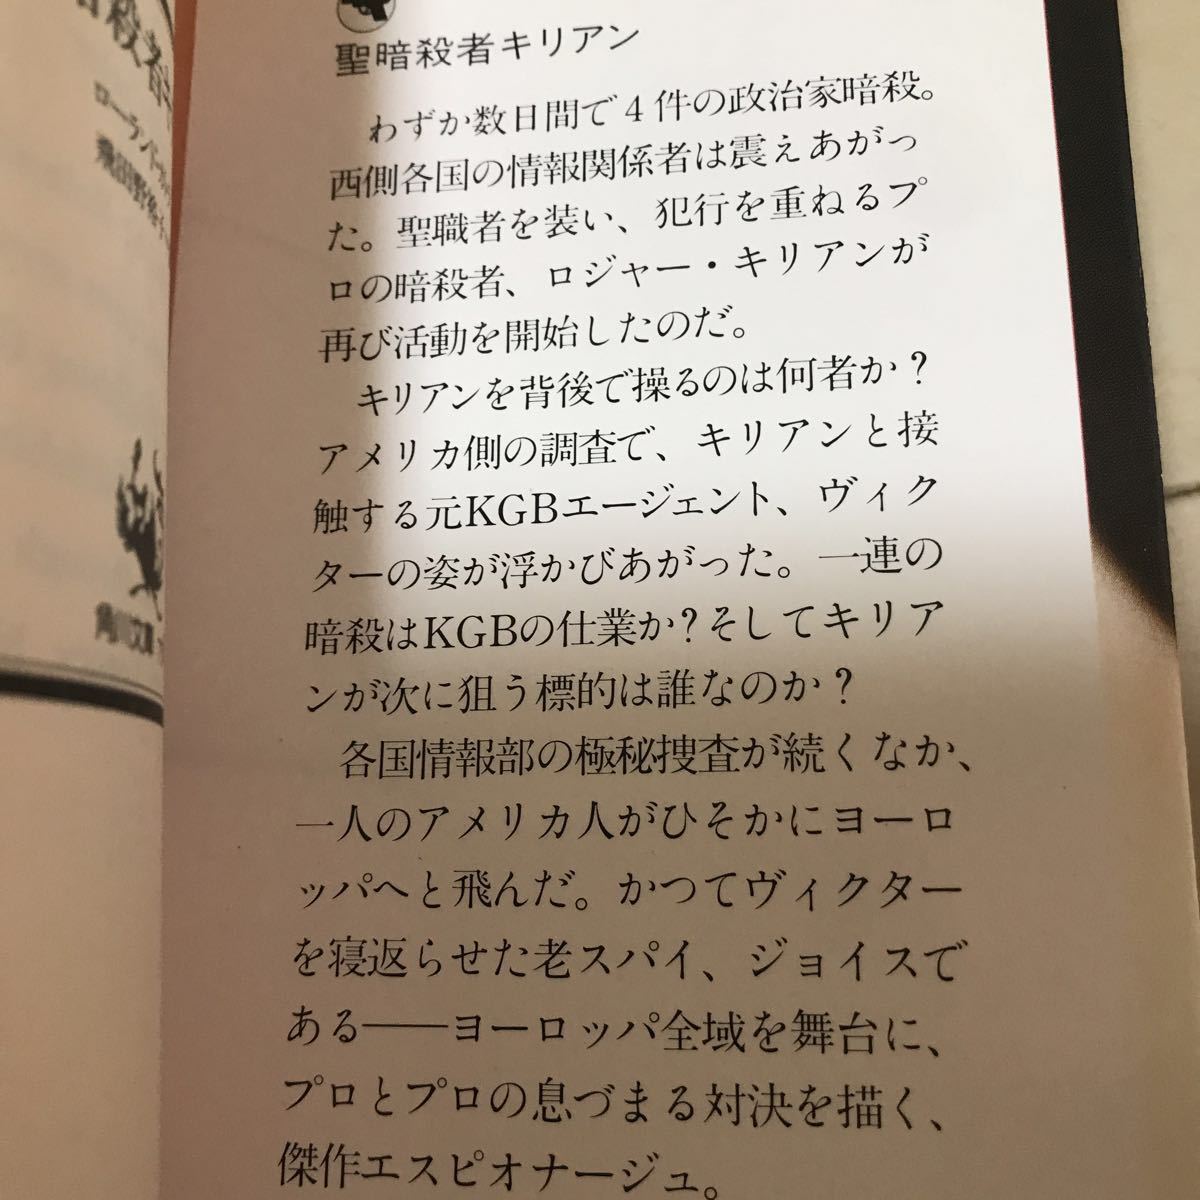 聖暗殺者キリアン
わずか数日間で4件の政治家暗殺。
西側各国の情報関係者は震えあがっ
た。聖職者を装い、犯行を重ねるプ
ロの暗殺者、ロジャー・キリアンが
再び活動を開始したのだ。
キリアンを背後で操るのは何者か？
アメリカ側の調査で、キリアンと接
触する元KGBエージェント、ヴィク
ターの姿が浮かびあがった。一連の
暗殺はKGBの仕業か？そしてキリア
ンが次に狙う標的は誰なのか？
各国情報部の極秘捜査が続くなか、
一人のアメリカ人がひそかにヨーロ
ッパへと飛んだ。かつてヴィクター
を寝返らせた老スパイ、ジョイスで
ある──ヨーロッパ全域を舞台に、
プロとプロの息づまる対決を描く、
傑作エスピオナージュ。
暗殺者
角川文庫